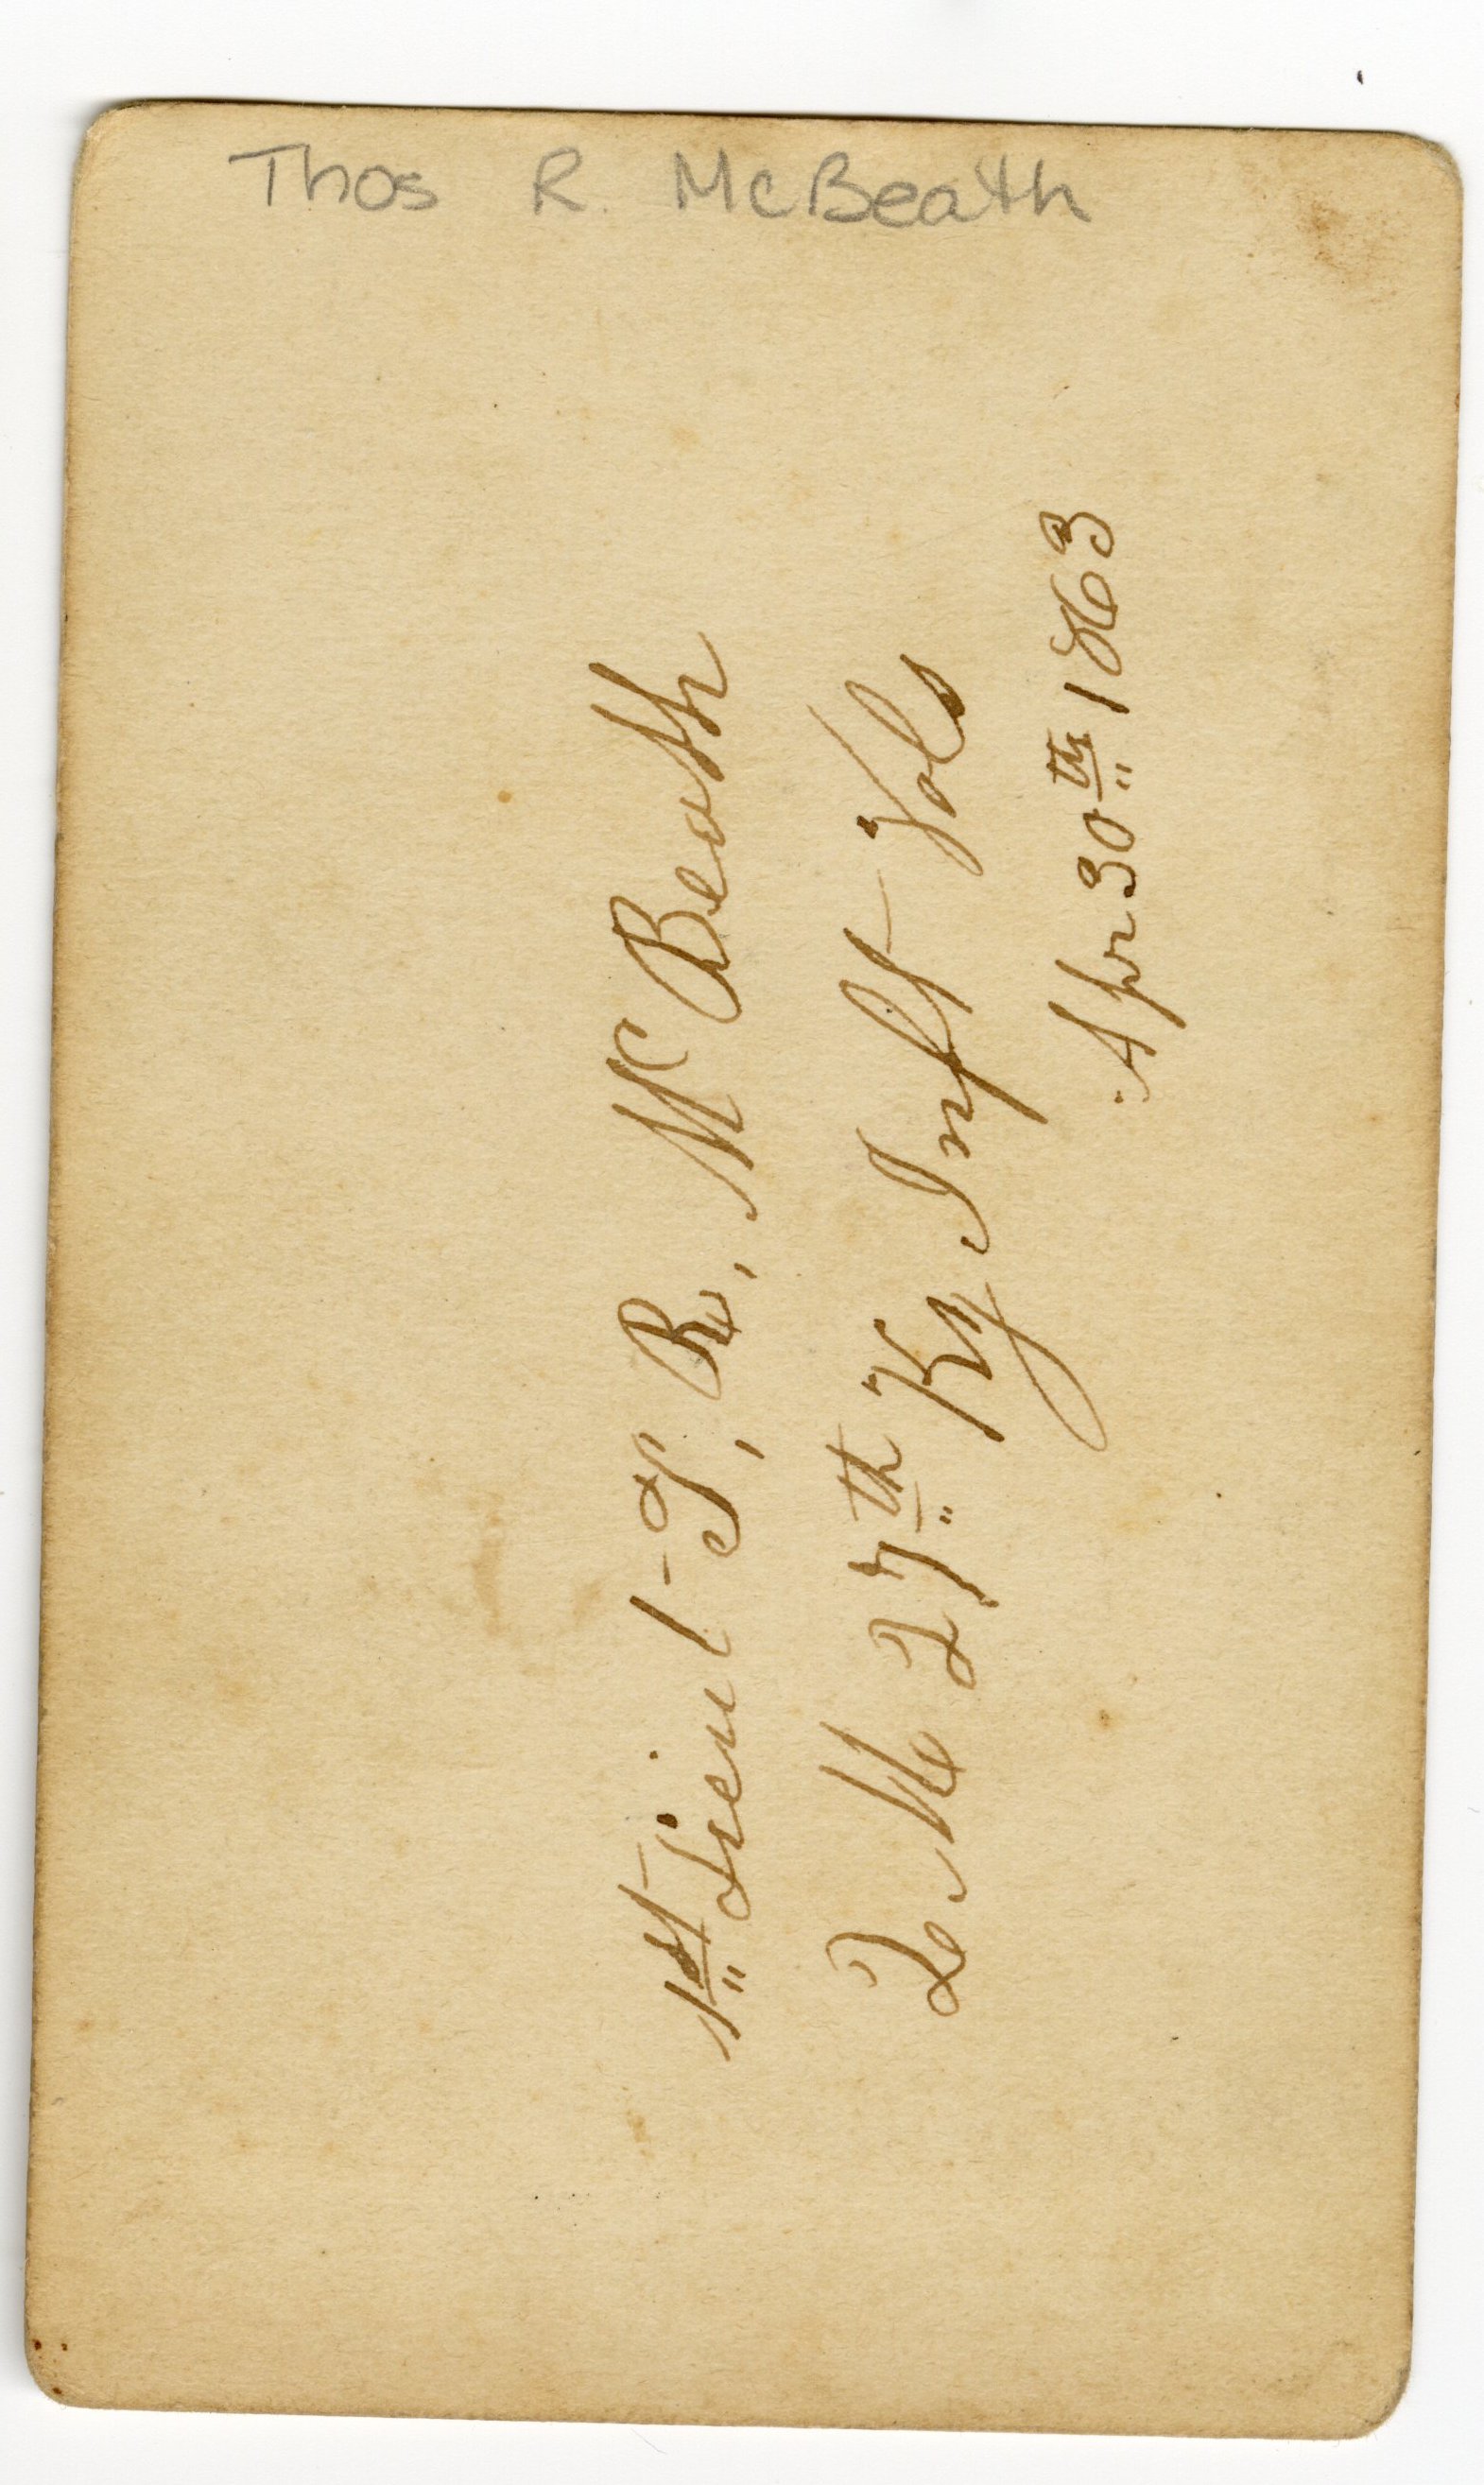 Thos R. McBeath
1st Lieut T, R, McBeath
2 M 27th Ky Inft Vols
Apr 30th 1863